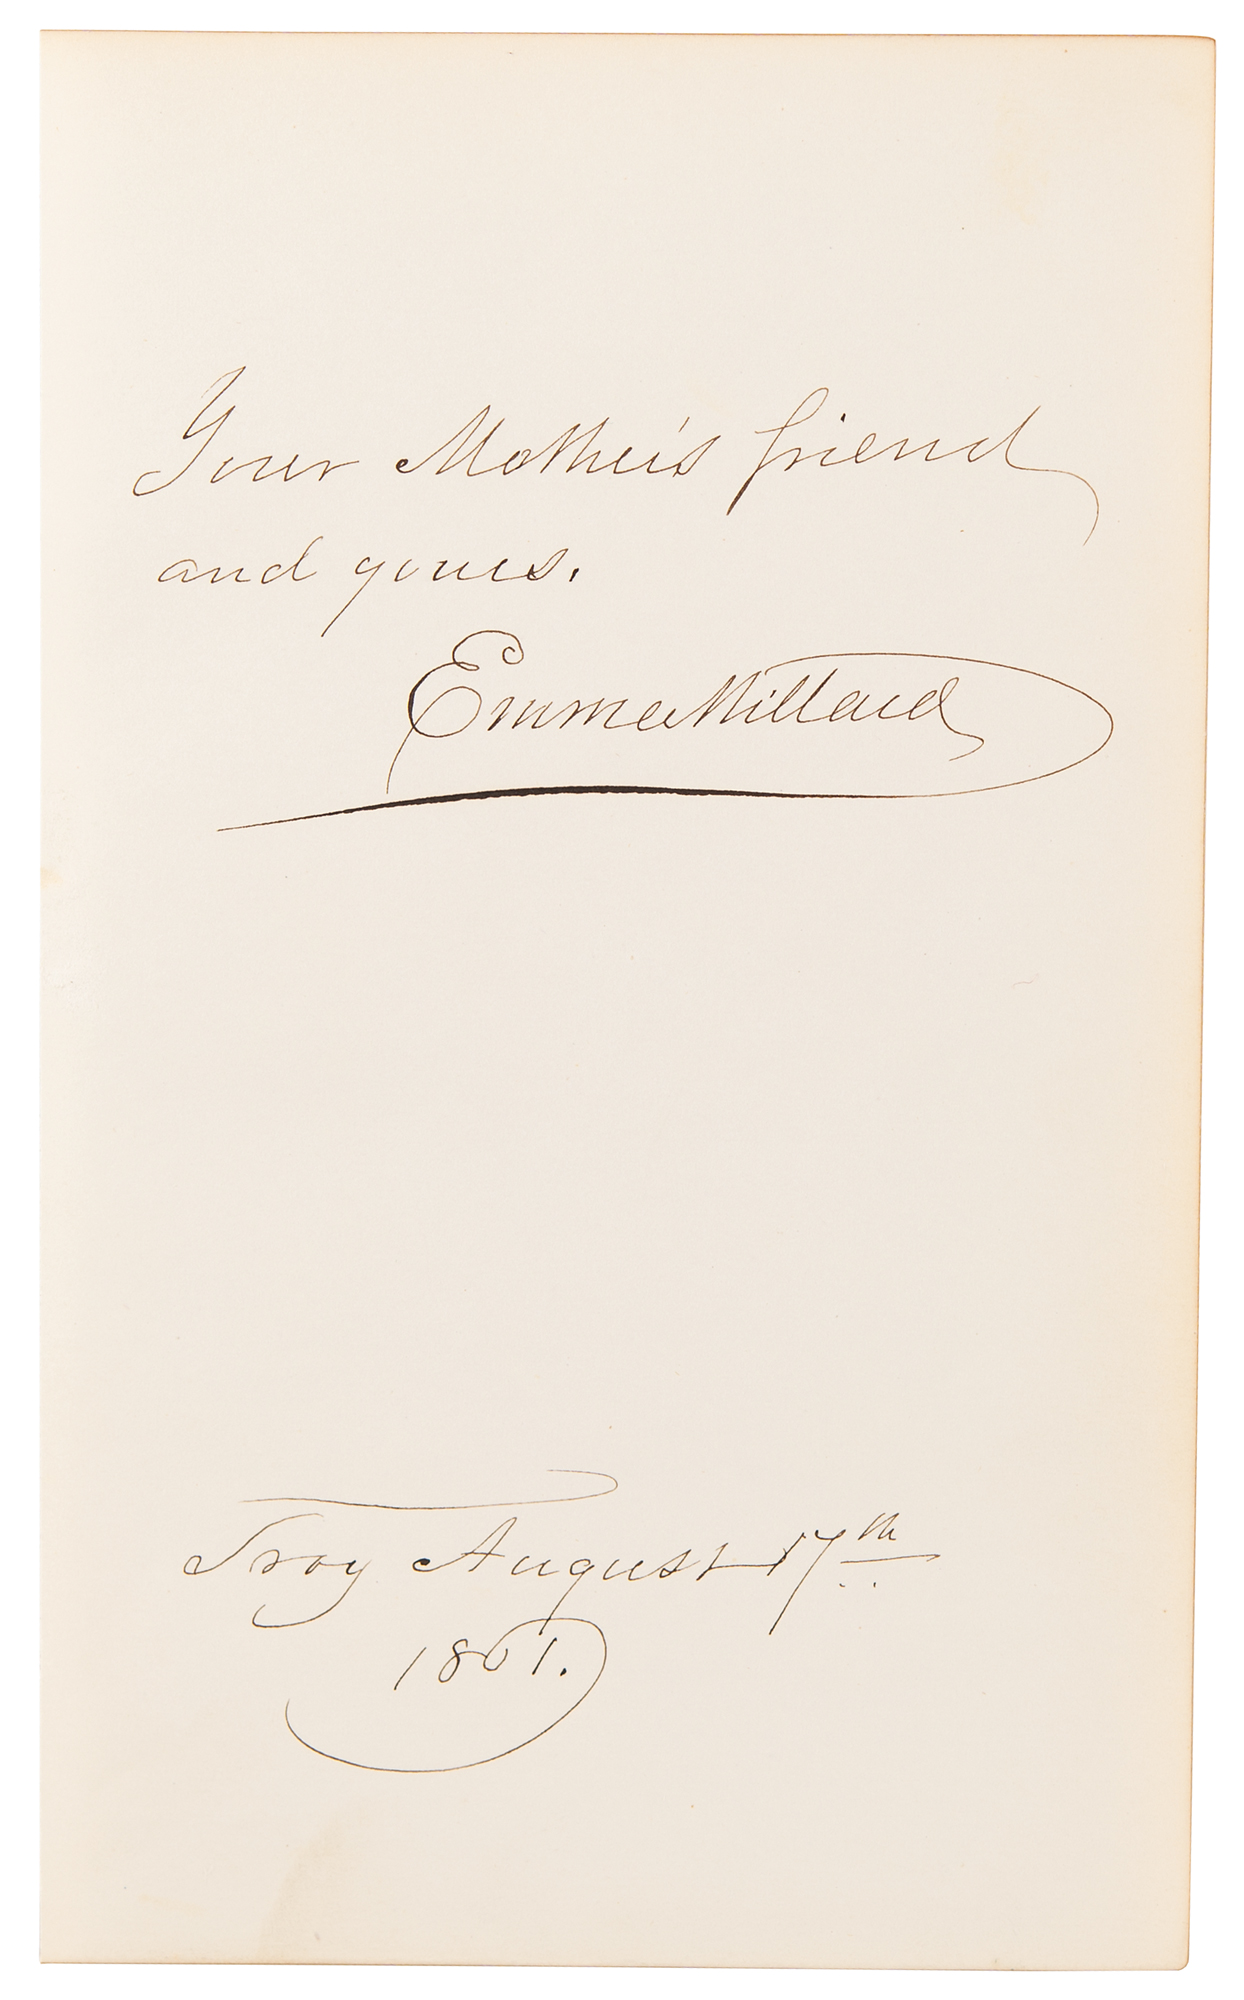 Your Mother's friend
and yours.
Emma Willard
Troy August 17th
1861.